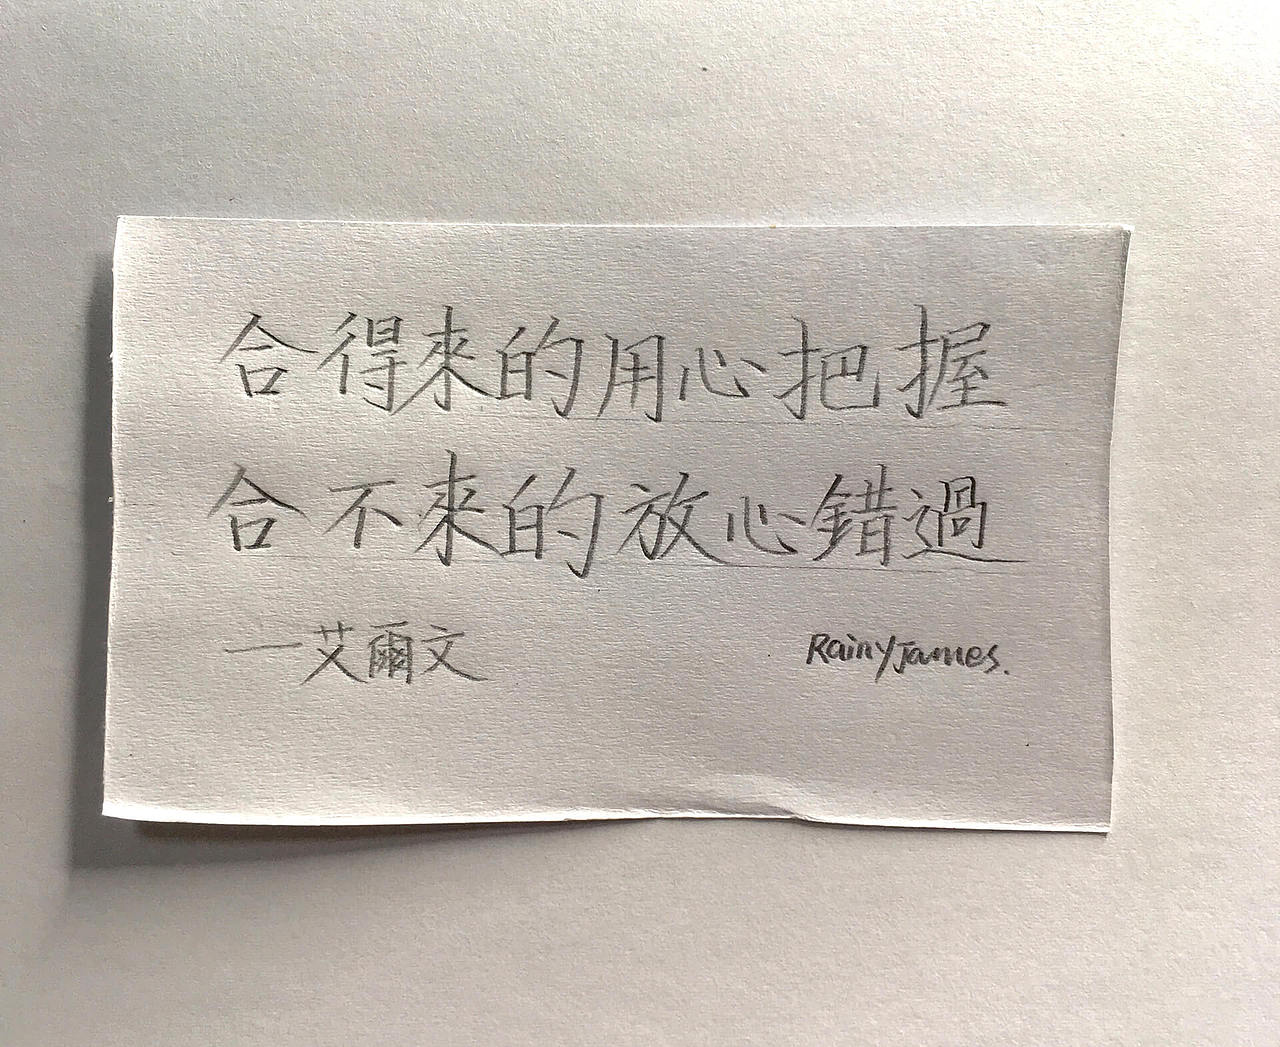 合得來的用心把握
合不來的放心錯過
—艾爾文
RainyJames.